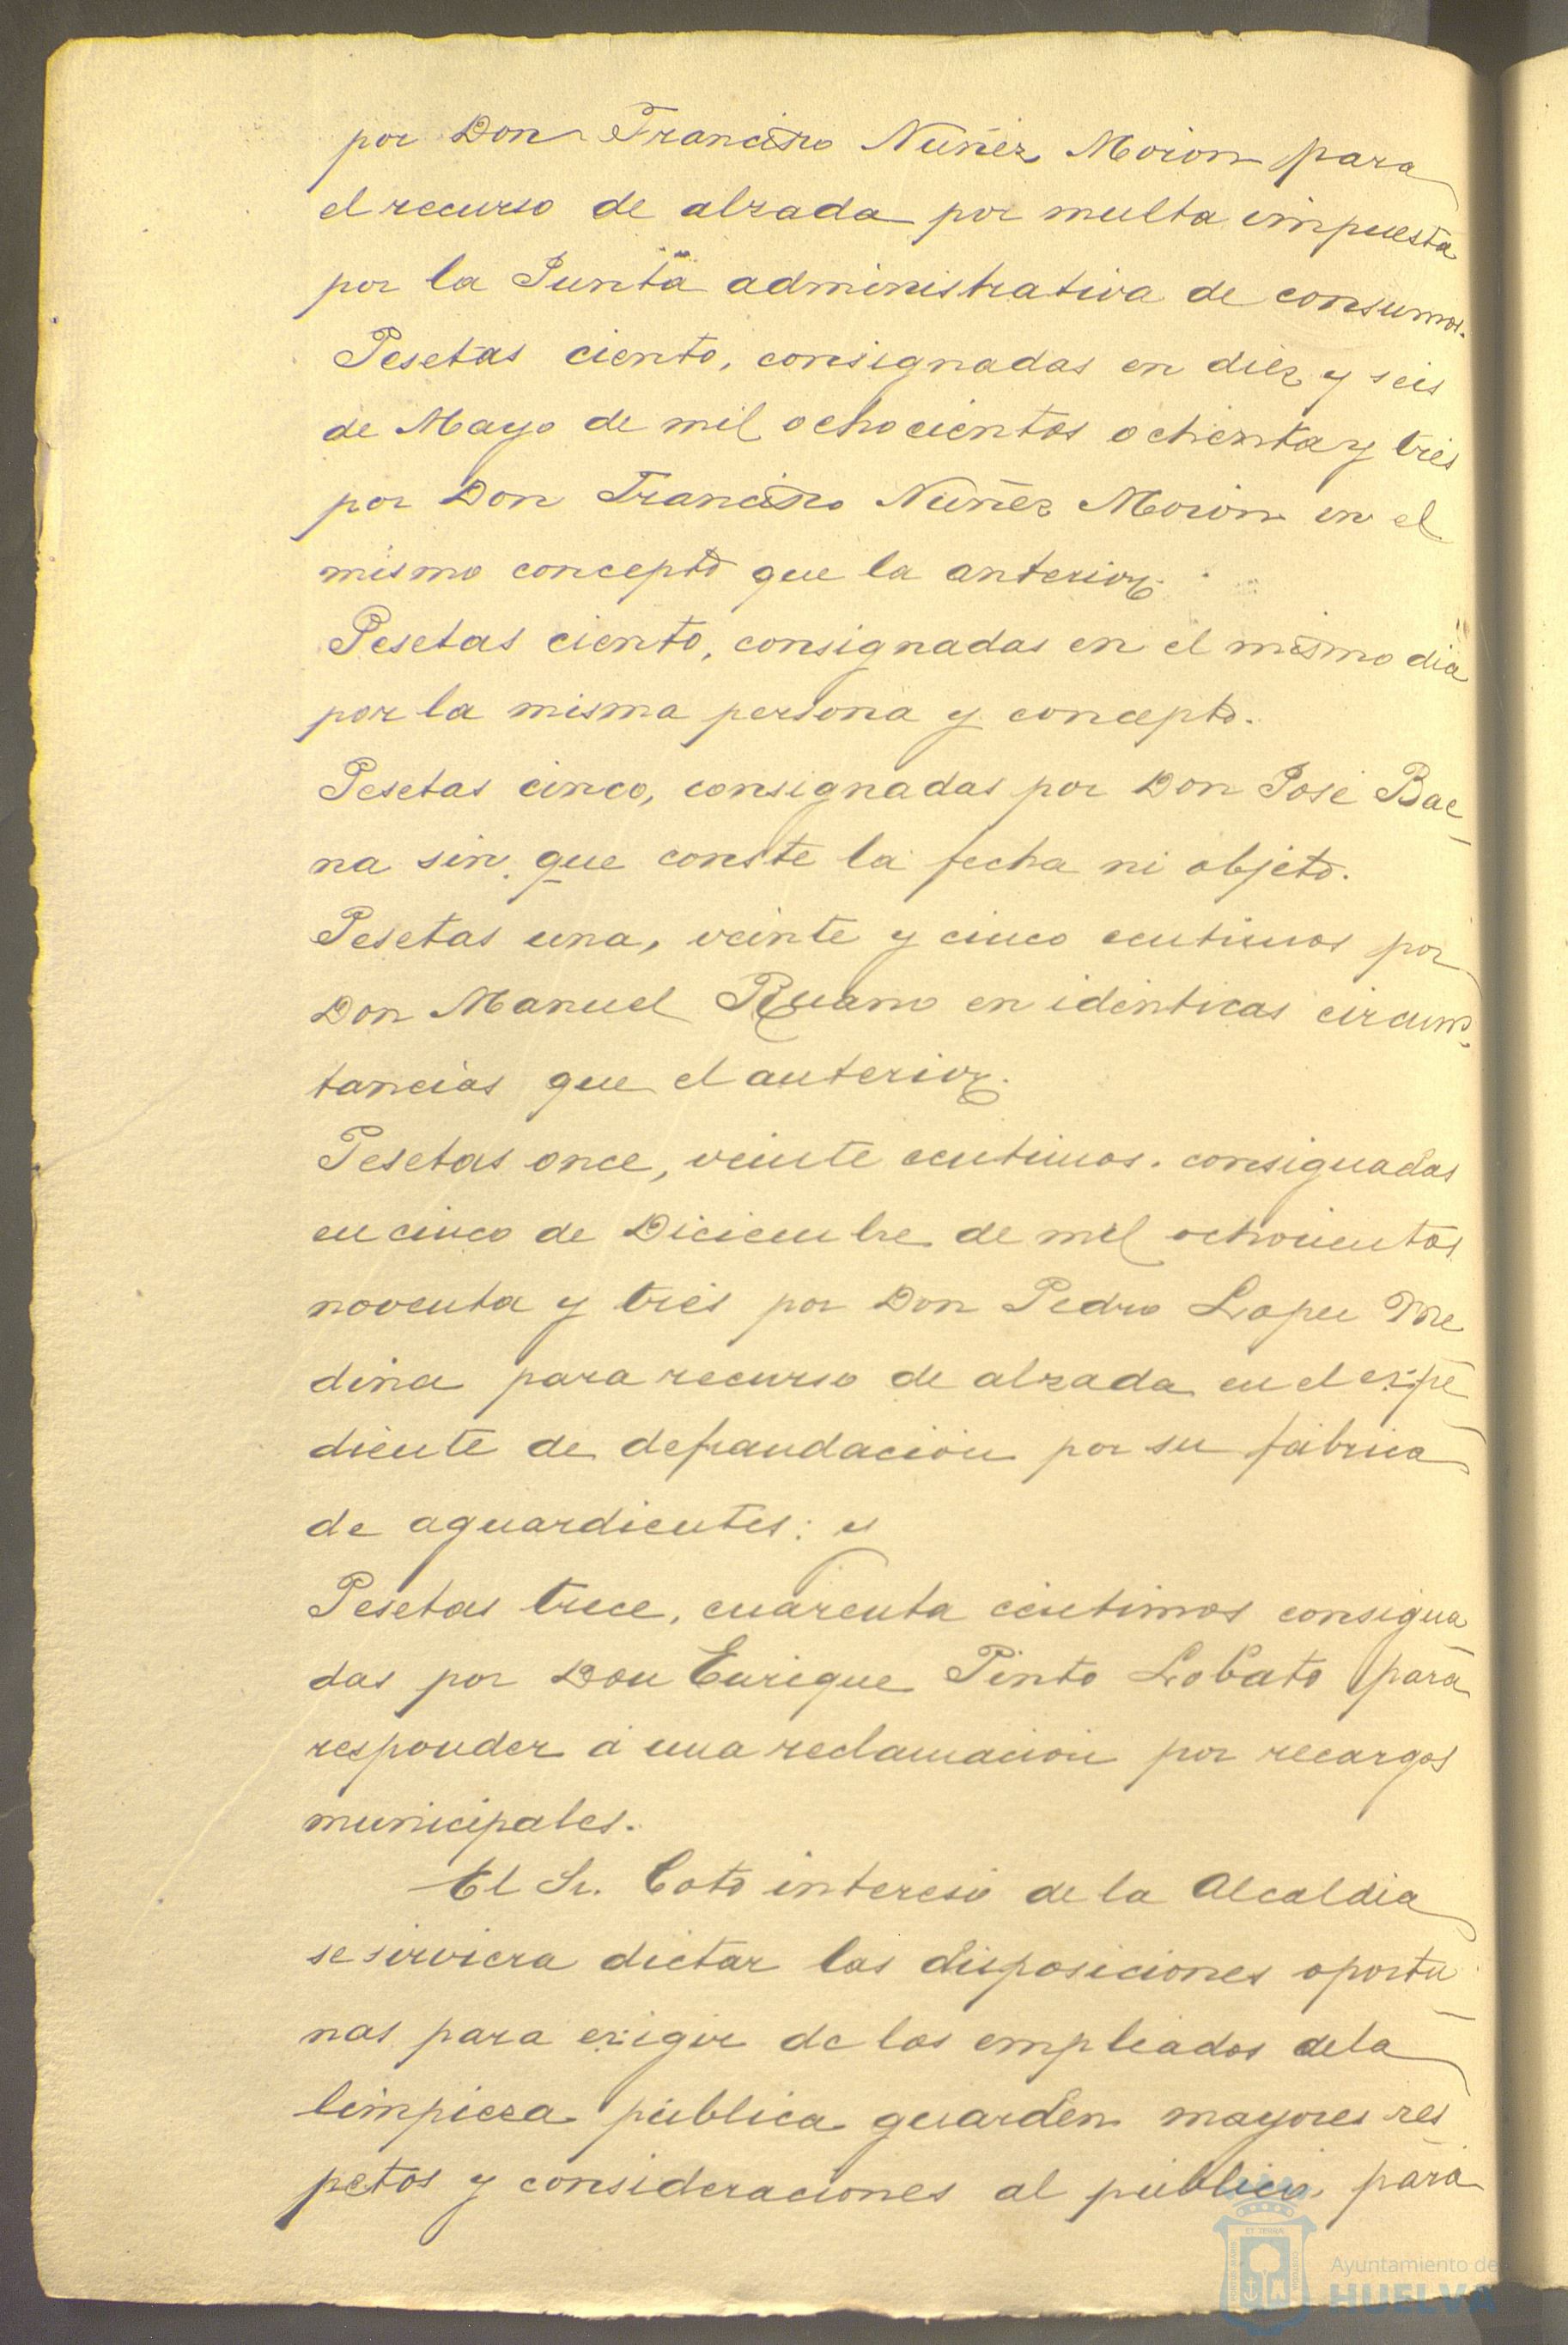 por Don Francisco Nuñez Moron para
el recurso de alzada por multa impuesta
por la Junta administrativa de consumos.
Pesetas ciento, consignadas en diez y seis
de Mayo de mil ochocientos ochenta y tres
por Don Francisco Nuñez Moron en el
mismo concepto que la anterior.
Pesetas ciento, consignadas en el mismo dia
por la misma persona y concepto.
Pesetas cinco, consignadas por Don José Bae-
na sin que conste la fecha ni objeto.
Pesetas una, veinte y cinco centimos por
Don Manuel Ruano en identicas circuns-
tancias que el anterior.
Pesetas once, veinte centimos. consignadas
en cinco de Diciembre de mil ochocientos
noventa y tres por Don Pedro Lopez Me
dina para recurso de alzada en el expe
diente de defraudación por su fábrica
de aguardientes: y
Pesetas trece, cuarenta centimos consigna
das por Don Enrique Pinto Lobato para
responder á una reclamación por recargos
municipales.
El Sr. Coto interesó de la Alcaldia
se sirviera dictar las disposiciones oportu-
nas para exigir de los empleados dela
limpieza pública guarden mayores res
petos y consideraciones al público, para
Ayuntamiento de
HUELVA